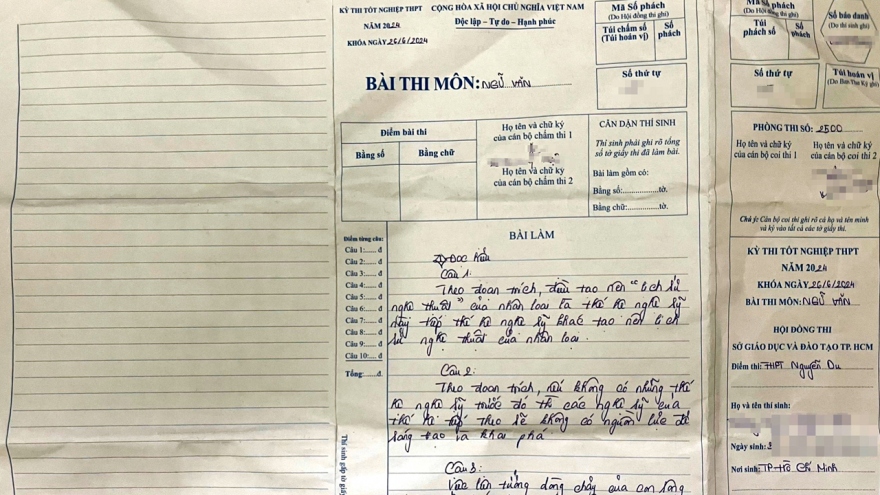 KỲ THI TỐT NGHIỆP THPT
NĂM 2024
KHÓA NGÀY 26/6/2024
CỘNG HÒA XÃ HỘI CHỦ NGHĨA VIỆT NAM
Độc lập - Tự do - Hạnh phúc
BÀI THI MÔN: NGỮ VĂN
Mã Số phách
(Do Hội đồng thi ghi)
Túi chấm số
(Túi hoán vị)
Số
phách
Số thứ tự
Điểm bài thi
Bằng số
Bằng chữ
Họ tên và chữ ký
của cán bộ chấm thi 1
Họ tên và chữ ký
của cán bộ chấm thi 2
CĂN DẶN THÍ SINH
Thí sinh phải ghi rõ tổng
số tờ giấy thi đã làm bài.
Bài làm gồm có:
Bằng số:..................tờ.
Bằng chữ:................tờ.
BÀI LÀM
Điểm từng câu:
Câu 1:...... đ
Câu 2:...... đ
Câu 3:...... đ
Câu 4:...... đ
Câu 5:...... đ
Câu 6:...... đ
Câu 7:...... đ
Câu 8:...... đ
Câu 9:...... đ
Câu 10:.... đ
Tổng:......đ
Đọc hiểu
Câu 1:
Theo đoạn trích, điều tạo nên "lịch sử
nghệ thuật" của nhân loại là thế hệ nghệ sỹ
này tiếp thế hệ nghệ sỹ khác tạo nên lịch
sử nghệ thuật của nhân loại.
Câu 2:
Theo đoạn trích, nếu không có những thế
hệ nghệ sỹ trước đó thì các nghệ sỹ của
thế hệ tiếp theo sẽ không có nguồn lực để
sáng tạo và khai phá
Câu 3:
Việc liên tưởng dòng chảy của con sông
Mã Số phách
(Do Hội đồng thi ghi)
Túi
phách số
Số
phách
Số báo danh
(Do thí sinh ghi)
Số thứ tự
Túi hoán vị
(Do Ban Thư Ký ghi)
PHÒNG THI SỐ: 2500
Họ tên và chữ ký
của cán bộ coi thi 1
Họ tên và chữ ký
của cán bộ coi thi 2
Chú ý: Cán bộ coi thi ghi rõ cả họ và tên mình
và ký vào tất cả các tờ giấy thi.
KỲ THI TỐT NGHIỆP THPT
NĂM 2024
KHÓA NGÀY 26/6/2024
BÀI THI MÔN: NGỮ VĂN
HỘI ĐỒNG THI
SỞ GIÁO DỤC VÀ ĐÀO TẠO TP. HCM
Điểm thi: THPT Nguyễn Du
Họ và tên thí sinh:
Ngày sinh: 2
Nơi sinh: TP-Hồ Chí Minh